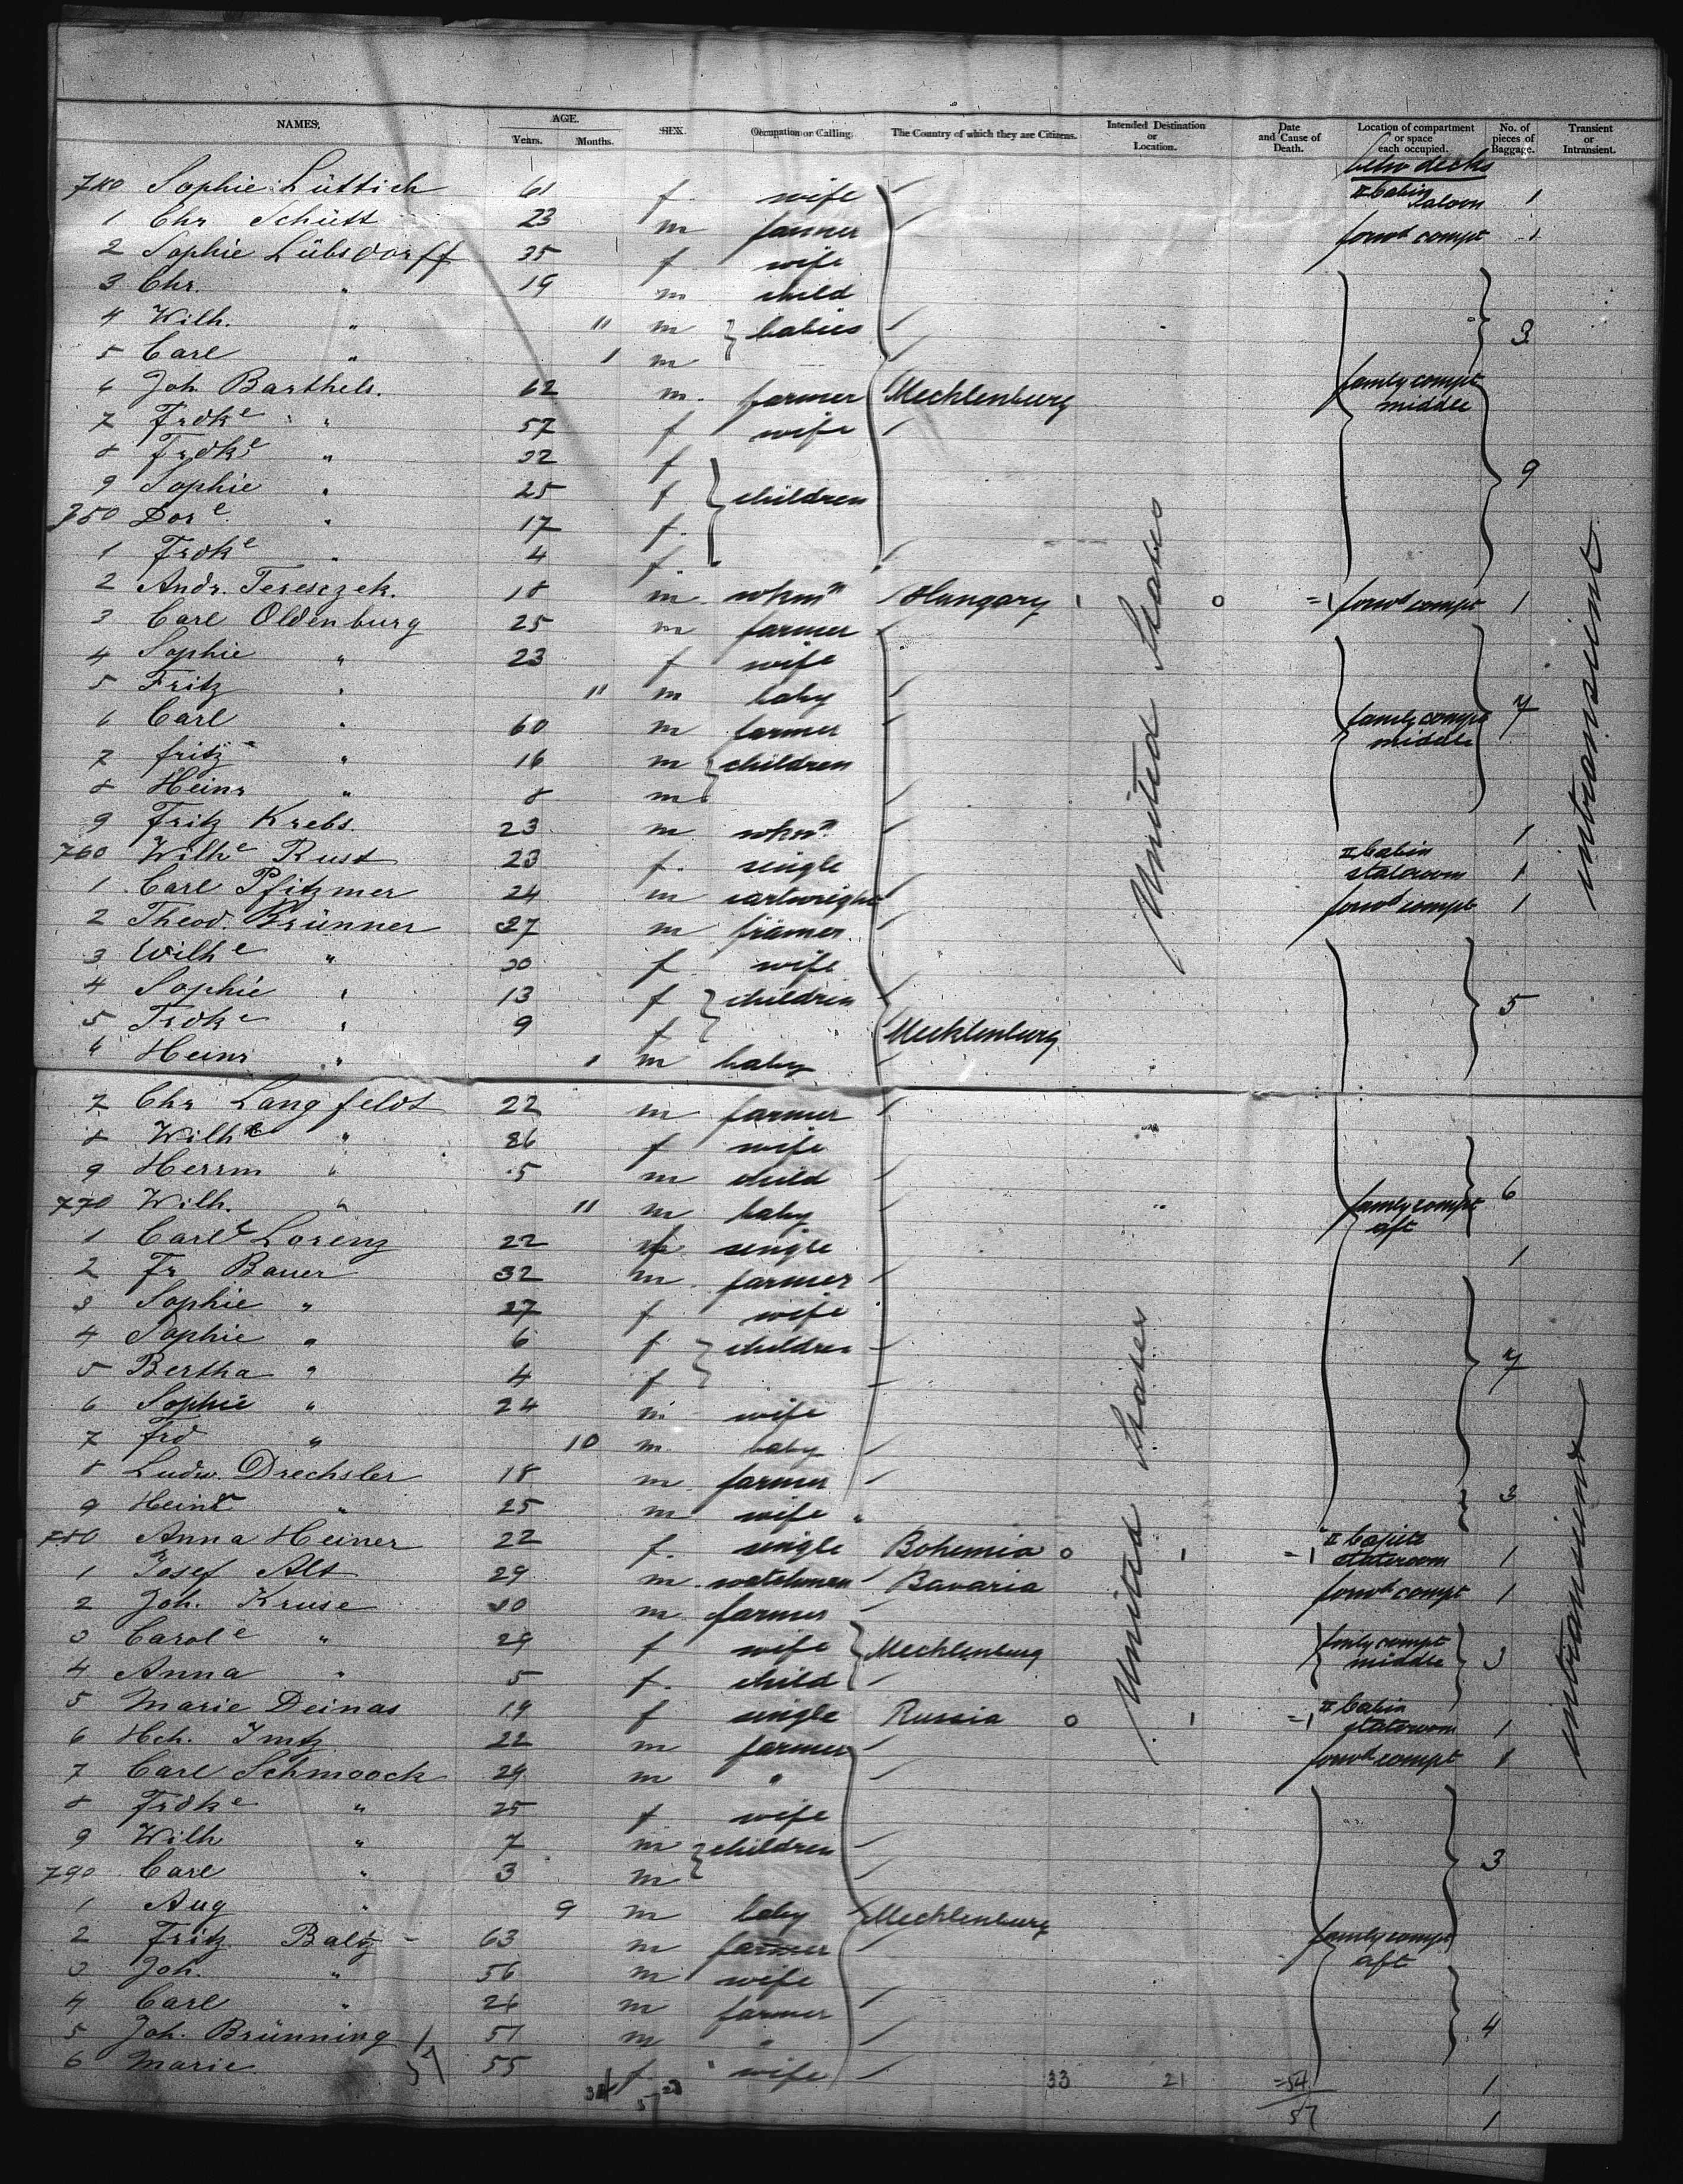 NAMES. AGE. SEX. Occupation or Calling. The Country of which they are Citizens. Intended Destination or Location. Date and Cause of Death. Location of compartment or space each occupied. No. of pieces of Baggage. Transient or Intransient.
Years. Months.
betw decks
740 Sophie Lüttich 61 f. wife II Cabin Saloon 1
1 Chr Schütt 23 m farmer forwd compt 1
2 Sophie Lübsdorff 35 f wife
3 Chr. " 19 m child
4 Wilh. " 11 m babies 3
5 Carl " 1 m
6 Joh. Barthels. 62 m. farmer Mecklenburg family compt middle
7 Frdke " 57 f wife
8 Frdke " 32 f
9 Sophie " 25 f children 9
750 Dore " 17 f.
1 Frdke " 4 f.
2 Andr. Teresczek. 18 m wkmn Hungary 1 0 =1 forwd compt 1
3 Carl Oldenburg 25 m farmer
4 Sophie " 23 f wife
5 Fritz " 11 m baby
6 Carl " 60 m farmer family compt middle 7
7 fritz " 16 m children
8 Heinr " 8 m
9 Fritz Krebs. 23 m wkmn 1
760 Wilhe Rust 23 f. single II Cabin stateroom 1
1 Carl Pfitzmer 24 m cartwright forwd compt 1
2 Theod. Brünner 37 m farmer
3 Wilhe " 30 f wife
4 Sophie " 13 f children 5
5 Frdke " 9 f Mecklenburg
6 Heinr " 1 m baby
7 Chr Langfeldt 22 m farmer
8 Wilhe " 26 f wife
9 Herrm " 5 m child
770 Wilh. " 11 m baby family compt aft 6
1 Carle Lorenz 22 f. single 1
2 Fr Bauer 32 m. farmer
3 Sophie " 27 f wife
4 Sophie " 6 f children
5 Bertha " 4 f 7
6 Sophie " 24 m wife
7 frd " 10 m. baby
8 Ludw. Drechsler 18 m. farmer
9 Heinr " 25 m wife " 3
780 Anna Heiner 22 f. single Bohemia 0 1 =1 II Cajüte stateroom 1
1 Josef Alt 29 m. watchman Bavaria forwd compt 1
2 Joh. Kruse 30 m. farmer
3 Carole " 29 f wife Mecklenburg fmly compt middle 3
4 Anna " 5 f. child
5 Marie Deinas 19 f single Russia 0 1 =1 II Cabin stateroom 1
6 Hch. Imtz 22 m farmer forwd compt 1
7 Carl Schmoock 29 m "
8 Frdke " 25 f wife
9 Wilh " 7 m children
790 Carl " 3 m 3
1 Aug " 9 m baby Mecklenburg
2 Fritz Baltz 63 m farmer family compt aft
3 Joh. " 56 m wife
4 Carl " 26 m farmer
5 Joh. Brünning 51 m " 4
6 Marie 55 f. wife 33 21 =54 1
57 1
United States
United States
intransient
intransient